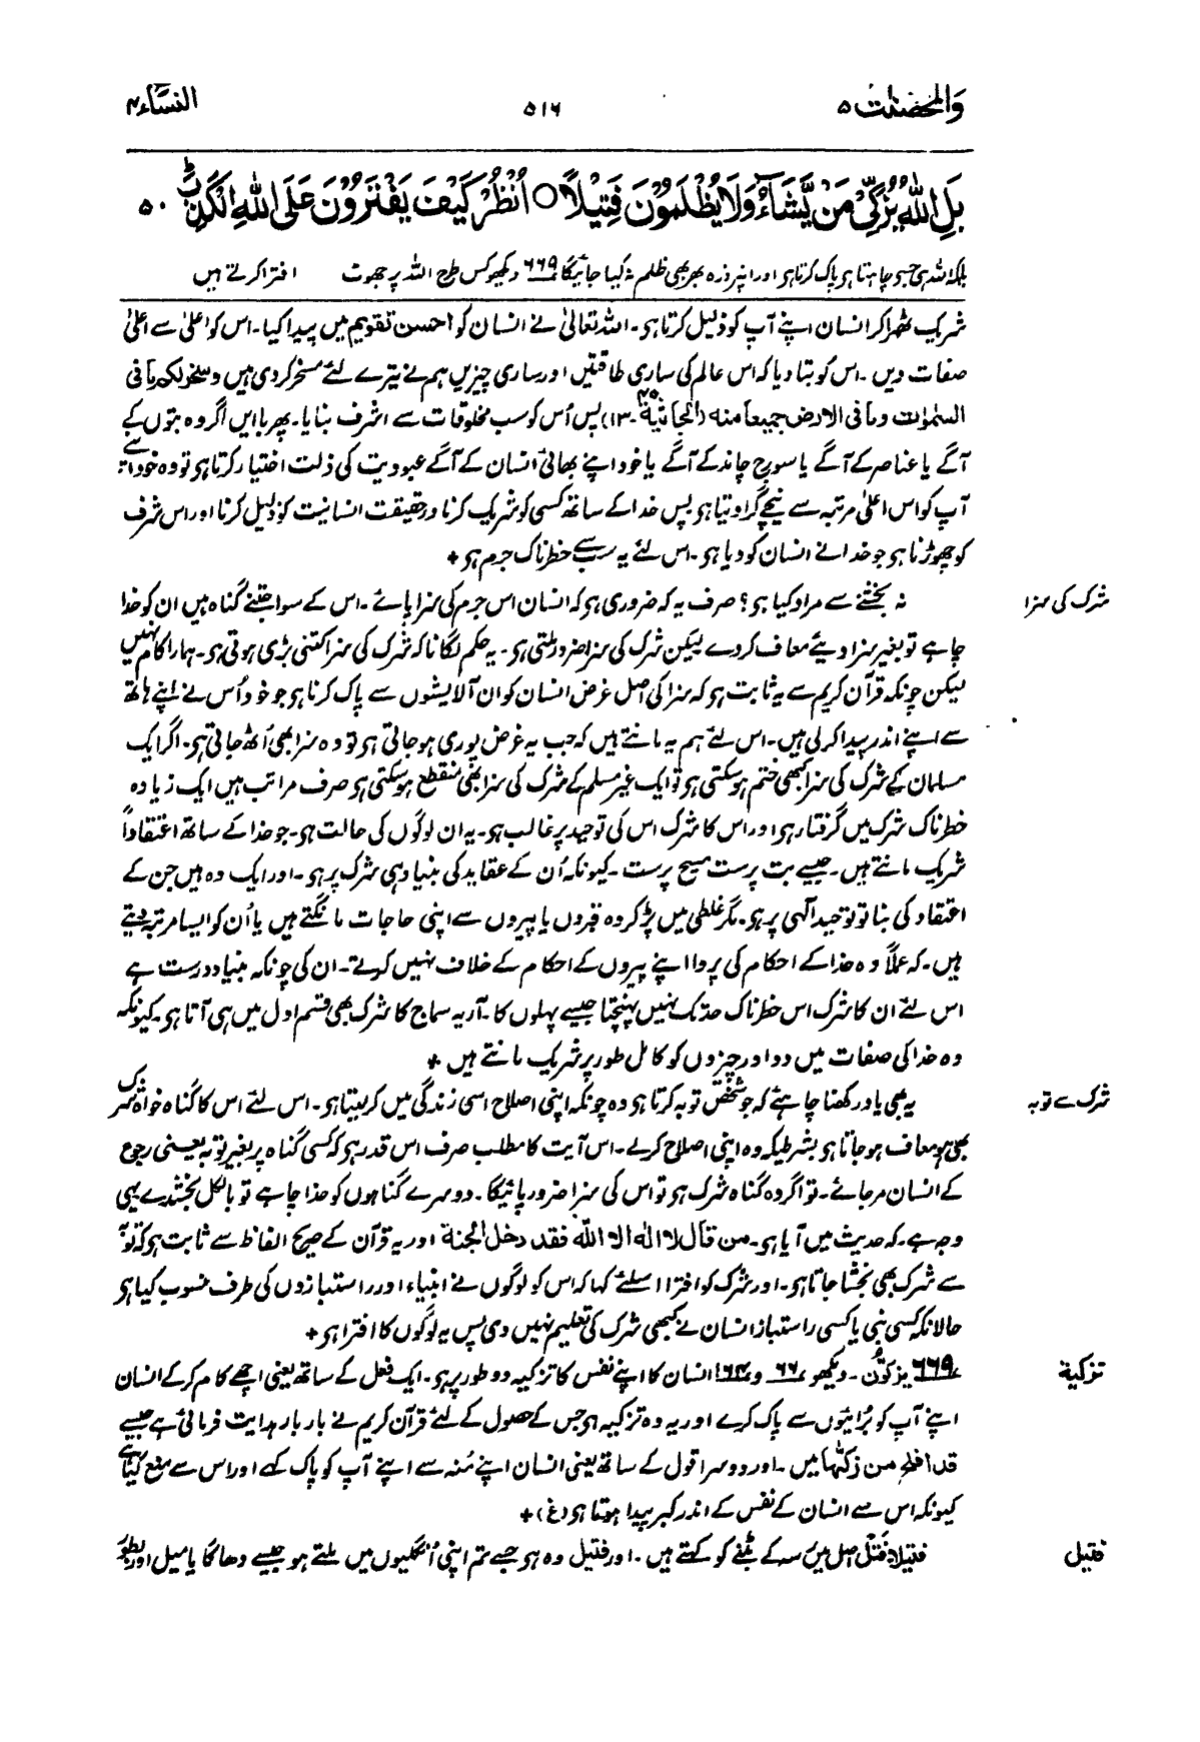 والمحصنٰت ۵
۵۱۶
النسآء ۴
بَلِ اللّٰهُ يُزَكِّيْ مَنْ يَّشَآءُ وَلَا يُظْلَمُوْنَ فَتِيْلًا ○ اُنْظُرْ كَيْفَ يَفْتَرُوْنَ عَلَى اللّٰهِ الْكَذِبَ ؕ ۵۰
بلکہ اللہ ہی جسے چاہتا ہے پاک کرتا ہے اور ان پر ذرہ بھر بھی ظلم نہ کیا جائیگا ۶۶۹ دیکھو کس طرح اللہ پر جھوٹ افترا کرتے ہیں
شریک ٹھہرا کر انسان اپنے آپ کو ذلیل کرتا ہو۔ اللہ تعالیٰ نے انسان کو احسن تقویم میں پیدا کیا۔ اس کو اعلیٰ سے اعلیٰ
صفات دیں۔ اس کو بتا دیا کہ اس عالم کی ساری طاقتیں اور ساری چیزیں ہم نے تیرے لئے مسخر کر دی ہیں وسخر لکم ما فی
السمٰوٰت وما فی الارض جمیعا منہ (الجاثیۃ ۴۵۔ ۱۳) پس اُس کو سب مخلوقات سے اشرف بنایا۔ پھر باایں اگر وہ بتوں کے
آگے یا عناصر کے آگے یا سورج چاند کے آگے یا خود اپنے بھائی انسان کے آگے عبودیت کی ذلت اختیار کرتا ہو تو وہ خود اپنے
آپ کو اس اعلیٰ مرتبہ سے نیچے گرا دیتا ہو پس خدا کے ساتھ کسی کو شریک کرنا درحقیقت انسانیت کو ذلیل کرنا اور اس شرف
کو چھوڑنا ہو جو خدا نے انسان کو دیا ہو۔ اس لئے یہ سب سے خطرناک جرم ہو +
شرک کی سزا
نہ بخشنے سے مراد کیا ہو؟ صرف یہ کہ ضروری ہو کہ انسان اس جرم کی سزا پائے۔ اس کے سوا جتنے گناہ ہیں ان کو خدا
چاہے تو بغیر سزا دیئے معاف کر دے لیکن شرک کی سزا ضرور ملتی ہو۔ یہ حکم لگانا کہ شرک کی سزا کتنی بڑی ہوتی ہو۔ ہمارا کام نہیں
لیکن چونکہ قرآن کریم سے یہ ثابت ہو کہ سزا کی اصل غرض انسان کو ان آلایشوں سے پاک کرنا ہو جو خود اُس نے اپنے ہاتھ
سے اپنے اندر پیدا کر لی ہیں۔ اس لئے ہم یہ مانتے ہیں کہ جب یہ غرض پوری ہو جاتی ہو تو وہ سزا بھی اُٹھ جاتی ہو۔ اگر ایک
مسلمان کے شرک کی سزا کبھی ختم ہو سکتی ہو تو ایک غیر مسلم کے شرک کی سزا بھی منقطع ہو سکتی ہو صرف مراتب ہیں ایک زیادہ
خطرناک شرک میں گرفتار ہو اور اس کا شرک اس کی توحید پر غالب ہو۔ یہ ان لوگوں کی حالت ہو۔ جو خدا کے ساتھ اعتقاداً
شریک مانتے ہیں۔ جیسے بت پرست مسیح پرست۔ کیونکہ اُن کے عقاید کی بنیاد ہی شرک پر ہو۔ اور ایک وہ ہیں جن کے
اعتقاد کی بنا تو توحید الٰہی پر ہو۔ مگر غلطی میں پڑ کر وہ قبروں یا پیروں سے اپنی حاجات مانگتے ہیں یا اُن کو ایسا مرتبہ دیتے
ہیں۔ کہ عملاً وہ خدا کے احکام کی پروا اپنے پیروں کے احکام کے خلاف نہیں کرتے۔ ان کی چونکہ بنیاد درست ہے
اس لئے ان کا شرک اس خطرناک حد تک نہیں پہنچتا جیسے پہلوں کا۔ آریہ سماج کا شرک بھی قسم اول میں ہی آتا ہو۔ کیونکہ
وہ خدا کی صفات میں دو اور چیزوں کو کامل طور پر شریک مانتے ہیں +
شرک سے توبہ
یہ بھی یاد رکھنا چاہئے کہ جو شخص توبہ کرتا ہو وہ چونکہ اپنی اصلاح اسی زندگی میں کر لیتا ہو۔ اس لئے اس کا گناہ خواہ شرک
بھی ہو معاف ہو جاتا ہو بشرطیکہ وہ اپنی اصلاح کر لے۔ اس آیت کا مطلب صرف اس قدر ہو کہ کسی گناہ پر بغیر توبہ یعنی رجوع
کے انسان مر جائے۔ تو اگر وہ گناہ شرک ہو تو اس کی سزا ضرور پائیگا۔ دوسرے گناہوں کو خدا چاہے تو بالکل بخشدے یہی
وجہ ہے۔ کہ حدیث میں آیا ہو۔ من قال لا الٰہ الا اللّٰہ فقد دخل الجنۃ اور یہ قرآن کے صریح الفاظ سے ثابت ہو کہ توبہ
سے شرک بھی بخشا جاتا ہو۔ اور شرک کو افترا اسلئے کہا کہ اس کو لوگوں نے انبیاء اور راستبازوں کی طرف منسوب کیا ہو
حالانکہ کسی نبی یا کسی راستباز انسان نے کبھی شرک کی تعلیم نہیں دی پس یہ لوگوں کا افترا ہو +
تزکیۃ
۶۶۹ یزکون۔ دیکھو ۶۶ و ۱۶۴ انسان کا اپنے نفس کا تزکیہ دو طور پر ہو۔ ایک فعل کے ساتھ یعنی اچھے کام کر کے انسان
اپنے آپ کو بُرائیوں سے پاک کرے اور یہ وہ تزکیہ ہو جس کے حصول کے لئے قرآن کریم نے بار بار ہدایت فرمائی ہے جیسے
قد افلح من زکٰھا میں۔ اور دوسرا قول کے ساتھ یعنی انسان اپنے مُنہ سے اپنے آپ کو پاک کہے اور اس سے منع کیا ہے
کیونکہ اس سے انسان کے نفس کے اندر کبر پیدا ہوتا ہو (غ) +
فتیل
فتیلا۔ فَتْل اصل میں رسہ کے بٹنے کو کہتے ہیں۔ اور فتیل وہ ہو جسے تم اپنی اُنگلیوں میں ملتے ہو جیسے دھاگا یا میل اور بطور